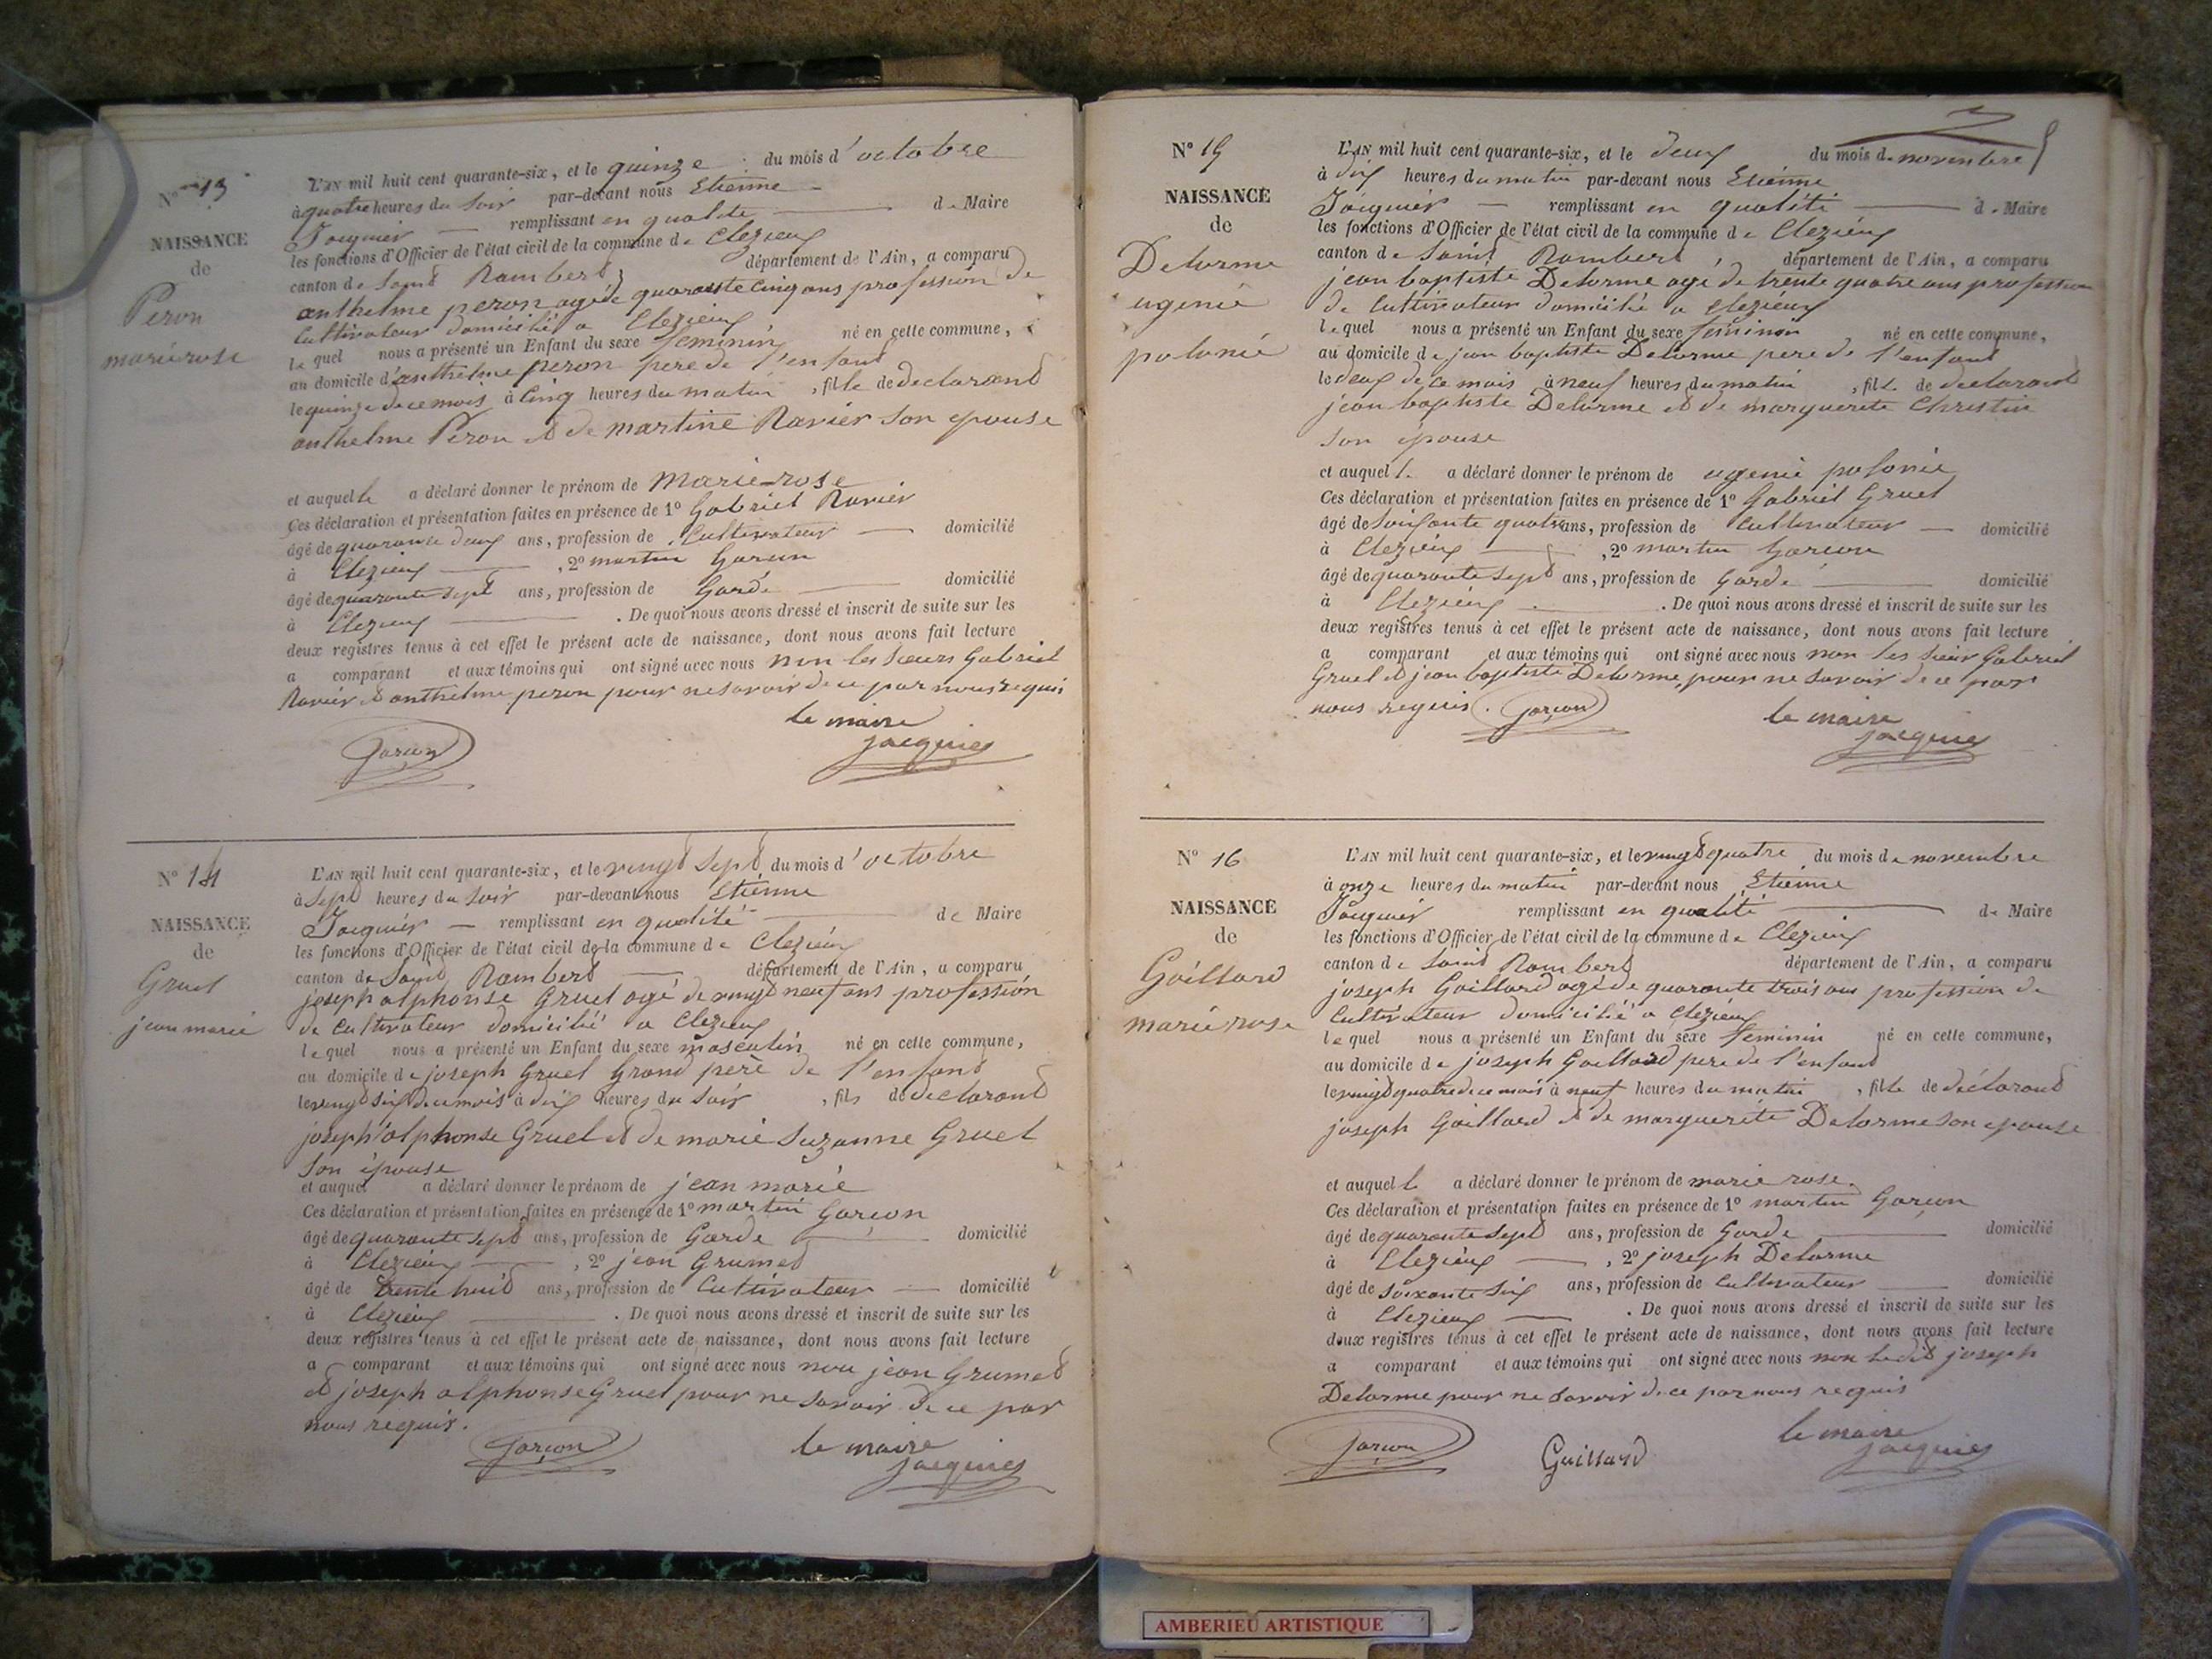 N° 13
NAISSANCE
de
Peron
marie rose
L'AN mil huit cent quarante-six, et le quinze du mois d'octobre
à quatre heures du soir par-devant nous Etienne
Jacquier remplissant en qualité de Maire
les fonctions d'Officier de l'état civil de la commune de Clezieux
canton de Saint Rambert, département de l'Ain, a comparu
anthelme peron agé de quarante cinq ans profession de
Cultivateur domicilié a Clezieux
lequel nous a présenté un Enfant du sexe feminin né en cette commune,
au domicile d'anthelme peron pere de l'enfant
le quinze de ce mois à Cinq heures du matin, fille de declarant
anthelme Peron et de martine Ravier son epouse
et auquelle a déclaré donner le prénom de marie rose
Ces déclaration et présentation faites en présence de 1° Gabriel Ravier
âgé de quarante deux ans, profession de Cultivateur domicilié
à Clezieux, 2° martin Garcon
âgé de quarante sept ans, profession de Garde domicilié
à Clezieux. De quoi nous avons dressé et inscrit de suite sur les
deux registres tenus à cet effet le présent acte de naissance, dont nous avons fait lecture
a comparant et aux témoins qui ont signé avec nous non les sieurs Gabriel
Ravier et anthelme peron pour ne savoir de ce par nous requis
le maire
Garçon jacquier
N° 14
NAISSANCE
de
Gruel
jean marie
L'AN mil huit cent quarante-six, et le vingt sept du mois d'octobre
à sept heures du soir par-devant nous Etienne
Jacquier remplissant en qualité de Maire
les fonctions d'Officier de l'état civil de la commune de Clezieux
canton de Saint Rambert département de l'Ain, a comparu
joseph alphonse Gruel agé de vingt neuf ans profession
de Cultivateur domicilié a Clezieux
lequel nous a présenté un Enfant du sexe masculin né en cette commune,
au domicile de joseph Gruel Grand père de l'enfant
le vingt six de ce mois à dix heures du soir, fils de declarant
joseph alphonse Gruel et de marie Suzanne Gruel
son épouse
et auquel a déclaré donner le prénom de jean marie
Ces déclaration et présentation faites en présence de 1° martin Garçon
âgé de quarante sept ans, profession de Garde domicilié
à Clezieux, 2° jean Grumet
âgé de trente huit ans, profession de Cultivateur domicilié
à Clezieux. De quoi nous avons dressé et inscrit de suite sur les
deux registres tenus à cet effet le présent acte de naissance, dont nous avons fait lecture
a comparant et aux témoins qui ont signé avec nous non jean Grumet
et joseph alphonse Gruel pour ne savoir de ce par
nous requis.
Garçon le maire
jacquier
N° 15
NAISSANCE
de
Delorme
ugenie
polonie
L'AN mil huit cent quarante-six, et le deux du mois de novembre
à dix heures du matin par-devant nous Etienne
Jacquier remplissant en qualité de Maire
les fonctions d'Officier de l'état civil de la commune de Clezieux
canton de Saint Rambert, département de l'Ain, a comparu
jean baptiste Delorme agé de trente quatre ans profession
de Cultivateur domicilié a Clezieux
lequel nous a présenté un Enfant du sexe feminin né en cette commune,
au domicile de jean baptiste Delorme pere de l'enfant
le deux de ce mois à neuf heures du matin, fille de declarant
jean baptiste Delorme et de marguerite Christin
son épouse
et auquel l. a déclaré donner le prénom de ugenie polonie
Ces déclaration et présentation faites en présence de 1° Gabriel Gruel
âgé de soixante quatre ans, profession de Cultivateur domicilié
à Clezieux, 2° martin Garcon
âgé de quarante sept ans, profession de Garde domicilié
à Clezieux. De quoi nous avons dressé et inscrit de suite sur les
deux registres tenus à cet effet le présent acte de naissance, dont nous avons fait lecture
a comparant et aux témoins qui ont signé avec nous non les sieur Gabriel
Gruel et jean baptiste Delorme, pour ne savoir de ce par
nous requis. Garçon le maire
jacquier
N° 16
NAISSANCE
de
Gaillard
marie rose
L'AN mil huit cent quarante-six, et le vingt quatre du mois de novembre
à onze heures du matin par-devant nous Etienne
Jacquier remplissant en qualité de Maire
les fonctions d'Officier de l'état civil de la commune de Clezieux
canton de Saint Rambert département de l'Ain, a comparu
joseph Gaillard agé de quarante trois ans profession de
Cultivateur domicilié a Clezieux
lequel nous a présenté un Enfant du sexe feminin né en cette commune,
au domicile de joseph Gaillard pere de l'enfant
le vingt quatre de ce mois à neuf heures du matin, fille de déclarant
joseph Gaillard et de marguerite Delorme son epouse
et auquelle a déclaré donner le prénom de marie rose.
Ces déclaration et présentation faites en présence de 1° martin Garçon
âgé de quarante sept ans, profession de Garde domicilié
à Clezieux, 2° joseph Delorme
âgé de soixante six ans, profession de Cultivateur domicilié
à Clezieux. De quoi nous avons dressé et inscrit de suite sur les
deux registres tenus à cet effet le présent acte de naissance, dont nous avons fait lecture
a comparant et aux témoins qui ont signé avec nous non ledit joseph
Delorme pour ne savoir de ce par nous requis
Garçon Gaillard le maire
jacquier
AMBERIEU ARTISTIQUE